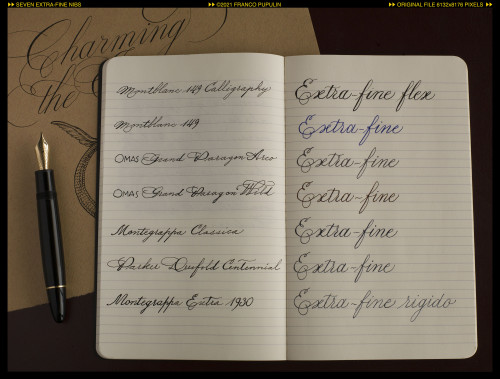 SEVEN EXTRA-FINE NIBS
©2021 FRANCO PUPULIN
ORIGINAL FILE 6132x8176 PIXELS
Charming
the
Montblanc 149 Calligraphy
Extra-fine flex
Montblanc 149
Extra-fine
OMAS Grand Paragon Arco
Extra-fine
OMAS Grand Paragon Wild
Extra-fine
Montegrappa Classica
Extra-fine
Parker Duofold Centennial
Extra-fine
Montegrappa Extra 1930
Extra-fine rigido